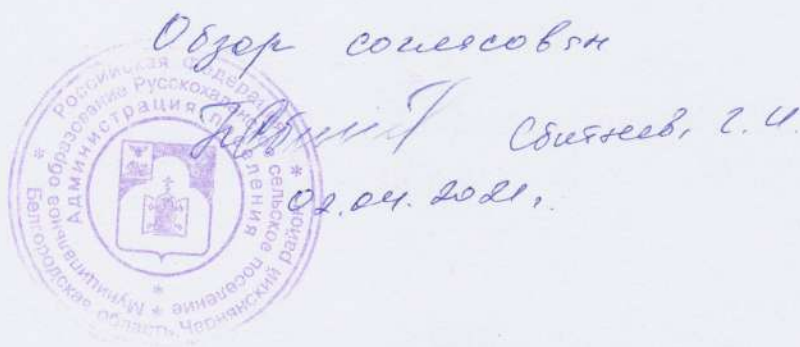 Обзор согласован
Сбитнев, Г. И.
02.04.2021.
Российская Федерация
Белгородская область Чернянский район
Муниципальное образование Русскохаланское сельское поселение
Администрация поселения